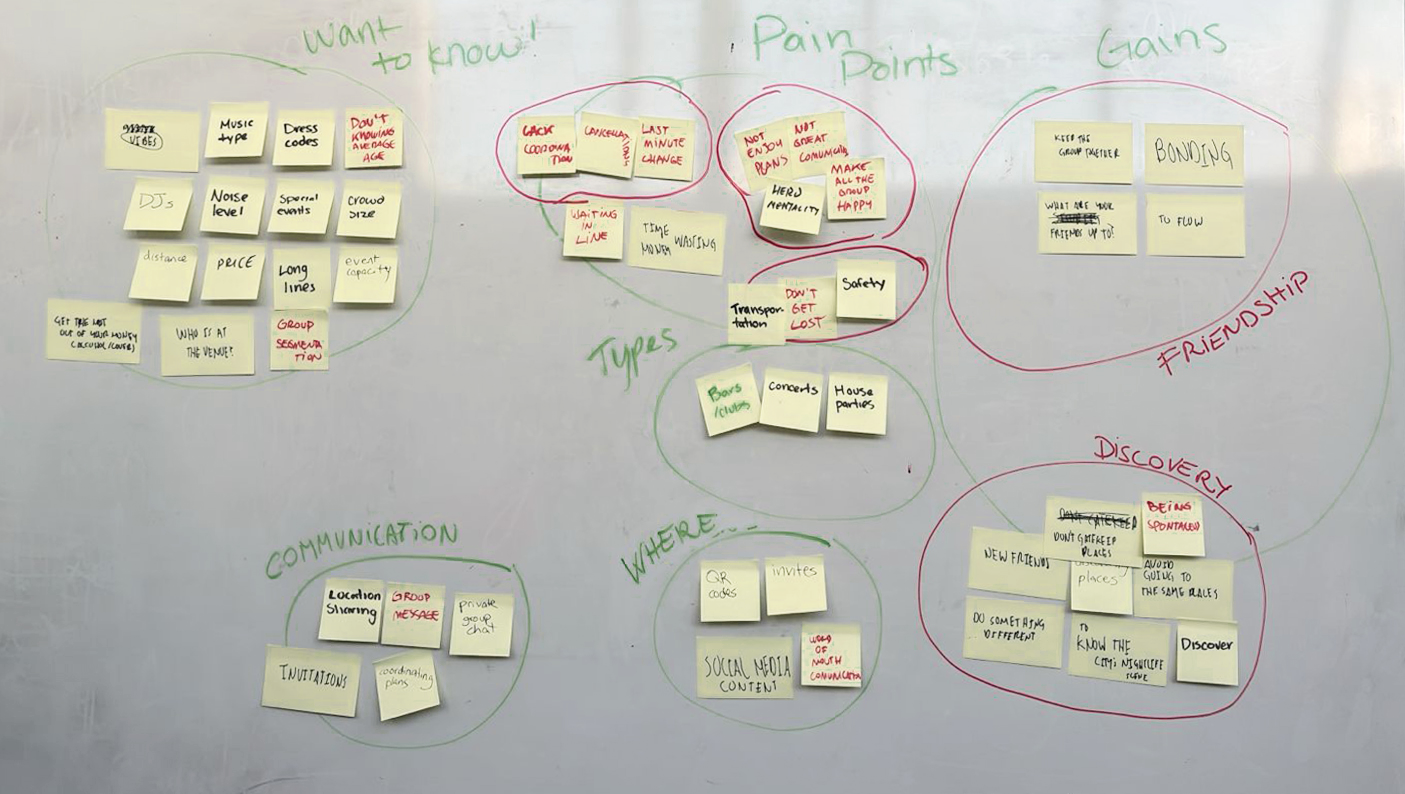 Want
to know!
VIBES
Music
type
Dress
codes
DON'T
KNOWING
AVERAGE
AGE
DJs
Noise
level
Special
events
Crowd
size
distance
PRICE
Long
lines
event
capacity
GET THE MOST
OUT OF YOUR MONEY
(ALCOHOL/COVER)
WHO IS AT
THE VENUE?
GROUP
SEGMENTA
TION
Pain
Points
LACK
COORDINA
TION
CANCELLA
TIONS
LAST
MINUTE
CHANGE
NOT
ENJOY
PLANS
NOT
GREAT
COMUNICATION
HERD
MENTALITY
MAKE
ALL THE
GROUP
HAPPY
WAITING
IN
LINE
TIME
MONEY WASTING
Transpor-
tation
DON'T
GET
LOST
Safety
Types
Bars
/clubs
Concerts
House
parties
Gains
KEEP THE
GROUP TOGETHER
BONDING
WHAT ARE YOUR
FRIENDS UP TO?
TO FLOW
FRIENDSHIP
DISCOVERY
DONT GATEKEEP
DONT GATEKEEP
PLACES
BEING
SPONTANEO
NEW FRIENDS
places
AVOID
GOING TO
THE SAME PLACES
DO SOMETHING
DIFFERENT
TO
KNOW THE
CITY'S NIGHTLIFE
SCENE
Discover
COMMUNICATION
Location
Sharing
GROUP
MESSAGE
private
group
chat
INVITATIONS
coordinating
plans
WHERE...
QR
codes
invites
SOCIAL MEDIA
CONTENT
WORD
OF
MOUTH
COMUNICATION